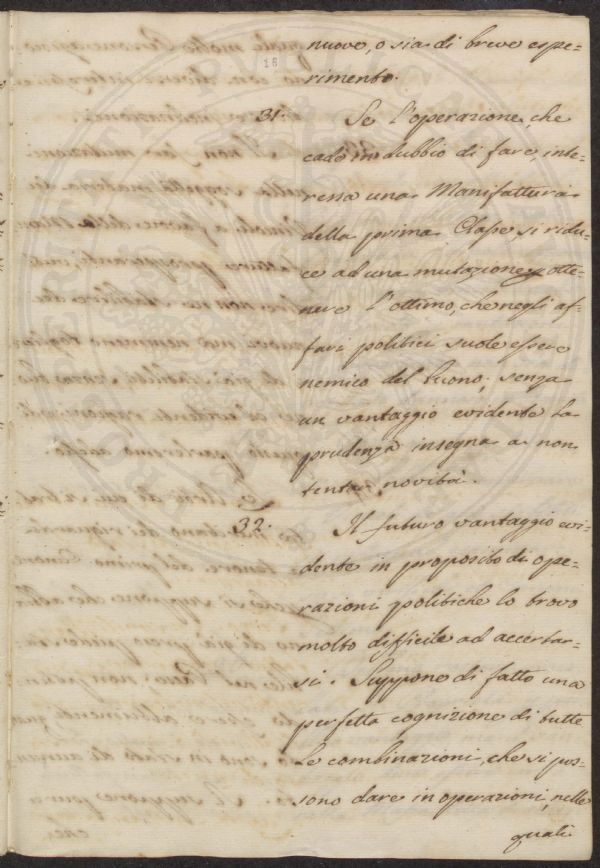 nuove, o sia di breve espe-
rimento.
16
31. Se l'operazione, che
cade in dubbio di fare, inte-
ressa una Manifattura
della prima Classe, si ridu-
ce ad una mutazione p otte-
nere l'ottimo, che negli af-
fari politici suole essere
nemico del buono; senza
un vantaggio evidente la
prudenza insegna a non
tentar novità.
32. Il futuro vantaggio evi-
dente in proposito di ope-
razioni politiche lo trovo
molto difficile ad accertar-
si. Suppone di fatto una
perfetta cognizione di tutte
le combinazioni, che si pos-
sono dare in operazioni, nelle
quali